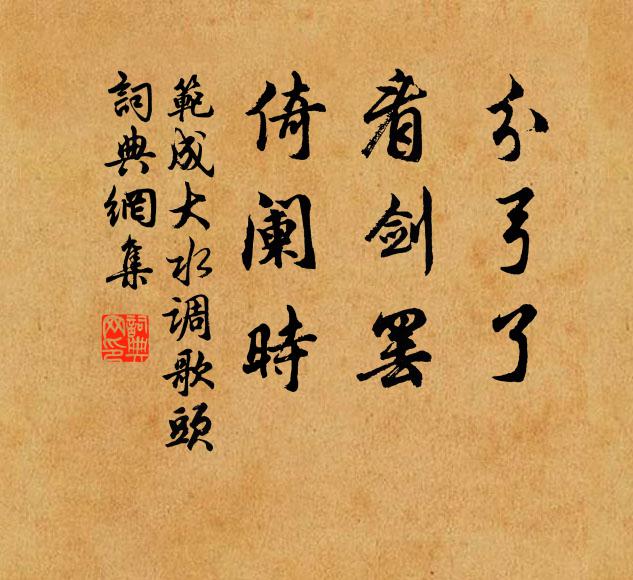 分弓了
看剑罢
倚阑時
範成大水调歌頭
詞典網集
詞典
网印